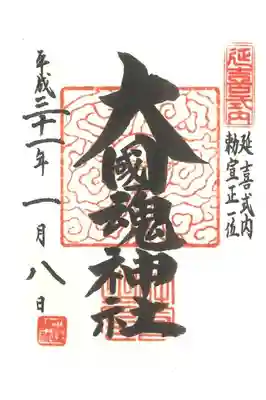 延喜式内
延喜式内
勅宣正一位
大國魂神社
平成三十一年一月八日